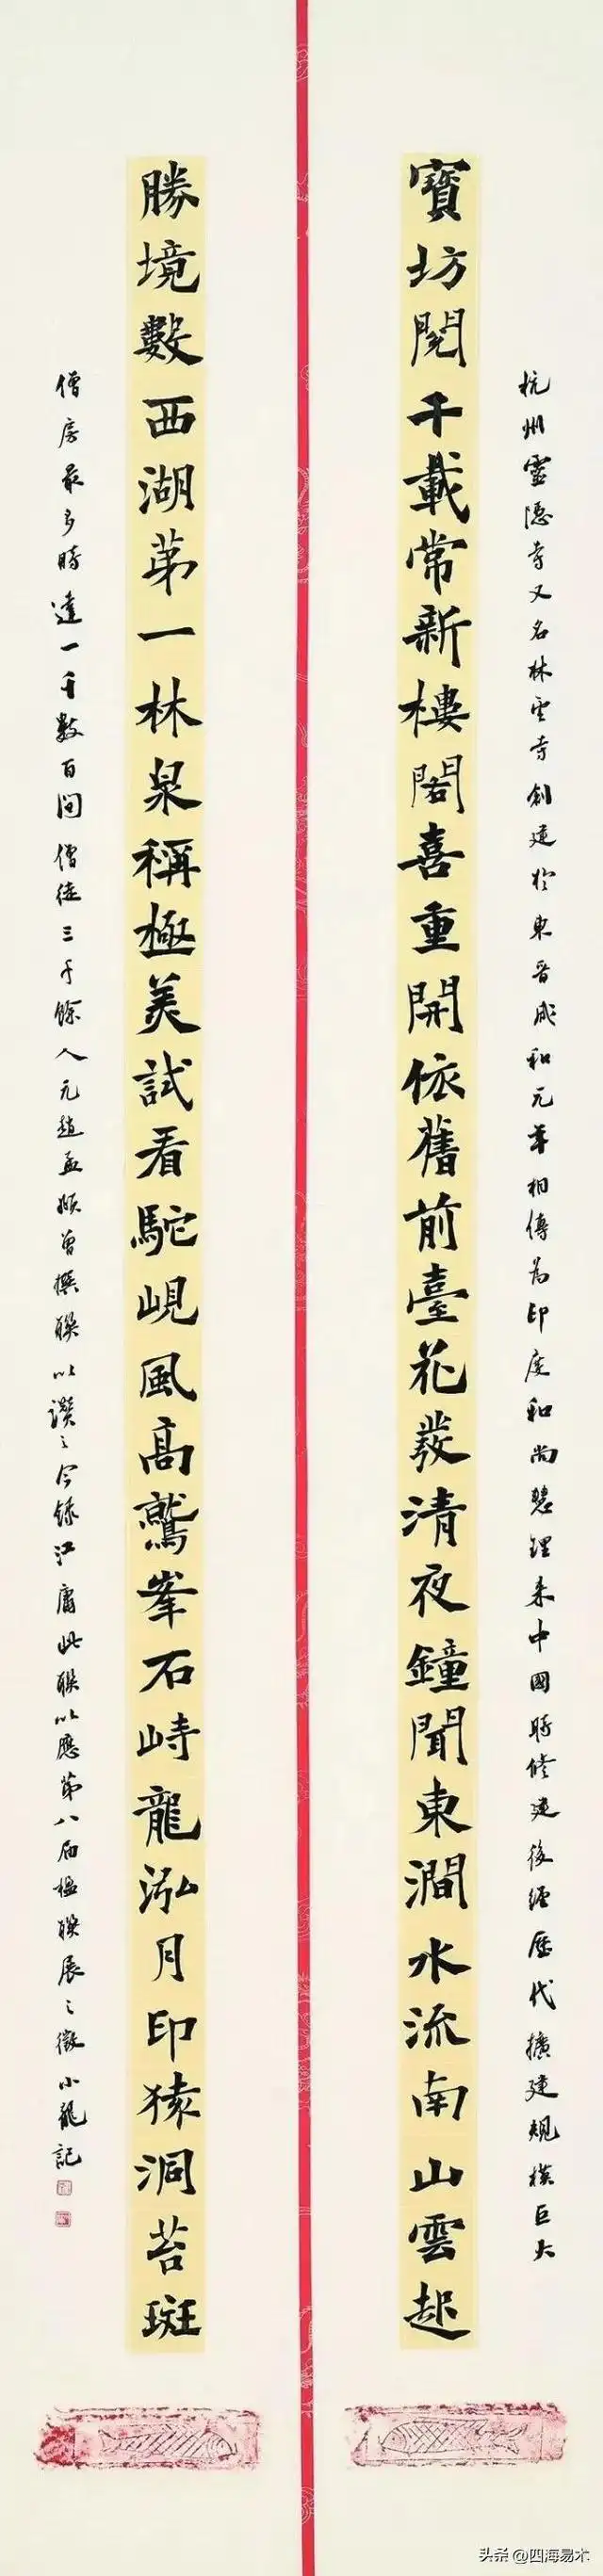 杭州靈隱寺又名林雲寺創建於東晉咸和元年相傳為印度和尚慧理來中國時修建後經歷代擴建規模巨大
寶坊閱千載常新樓閣喜重開依舊前臺花發清夜鐘聞東澗水流南山雲起
勝境數西湖第一林泉稱極美試看駝峴風高鷲峯石峙龍泓月印猿洞苔斑
僧房最多時達一千數百間僧徒三千餘人元趙孟頫曾撰聯以讚之今錄江庸此聯以應第八屆楹聯展之徵小龍記
头条 @四海易木